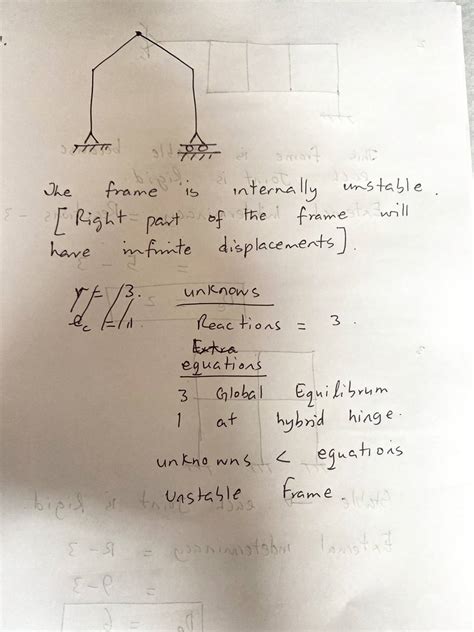 The frame is internally unstable.
[Right part of the frame will
have infinite displacements].
r = 3.
unknowns
Reactions = 3.
Extra
equations
3 Global Equilibrum
1 at hybrid hinge.
unknowns < equations
unstable Frame.